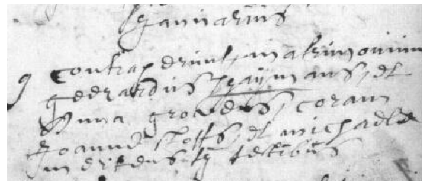 Januarius
9 contraxerunt matrimonium
gerardus Haijmans et
Anna groetens coram
Joanne et michaele
testibus